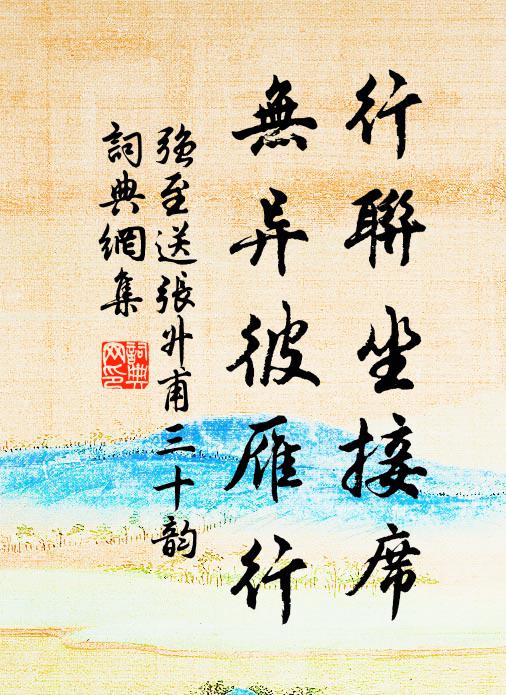 行聯坐接席
無异彼雁行
強至送張升甫三十韵
詞典網集
詞典網印